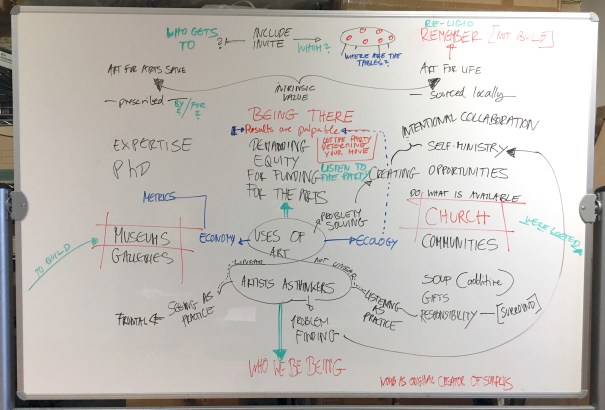 WHO GETS
TO ?
INCLUDE
INVITE
WHOM?
WHERE ARE THE
TABLES?
RE-LIGIO
REMEMBER [NOT BUILD]
ART FOR ARTS SAKE
INTRINSIC
VALUE
ART FOR LIFE
— prescribed BY/FOR
? ?
— sourced locally —
BEING THERE
Results are palpable
INTENTIONAL COLLABORATION
EXPERTISE
PhD
DEMANDING
EQUITY
FOR FUNDING
FOR THE ARTS
LET THE PARTY
DETERMINE
YOUR MOVE
LISTEN TO
THE PARTY
SELF-MINISTRY
CREATING OPPORTUNITIES
DO, WHAT IS AVAILABLE
METRICS
PROBLEM
SOLVING
CHURCH
COMMUNITIES
WE'RE ROOTED
MUSEUMS
GALLERIES
ECONOMY
USES OF
ART
ECOLOGY
TO BUILD
LINEAR
NOT LINEAR
ARTISTS AS THINKERS
SEEING AS
PRACTICE
FRONTAL
LISTENING
AS
PRACTICE
SOUP (additive)
GIFTS
RESPONSIBILITY — [SURROUND]
PROBLEM
FINDING
WHO WE BE BEING
WOMB AS ORIGINAL CREATOR OF SURPLUS